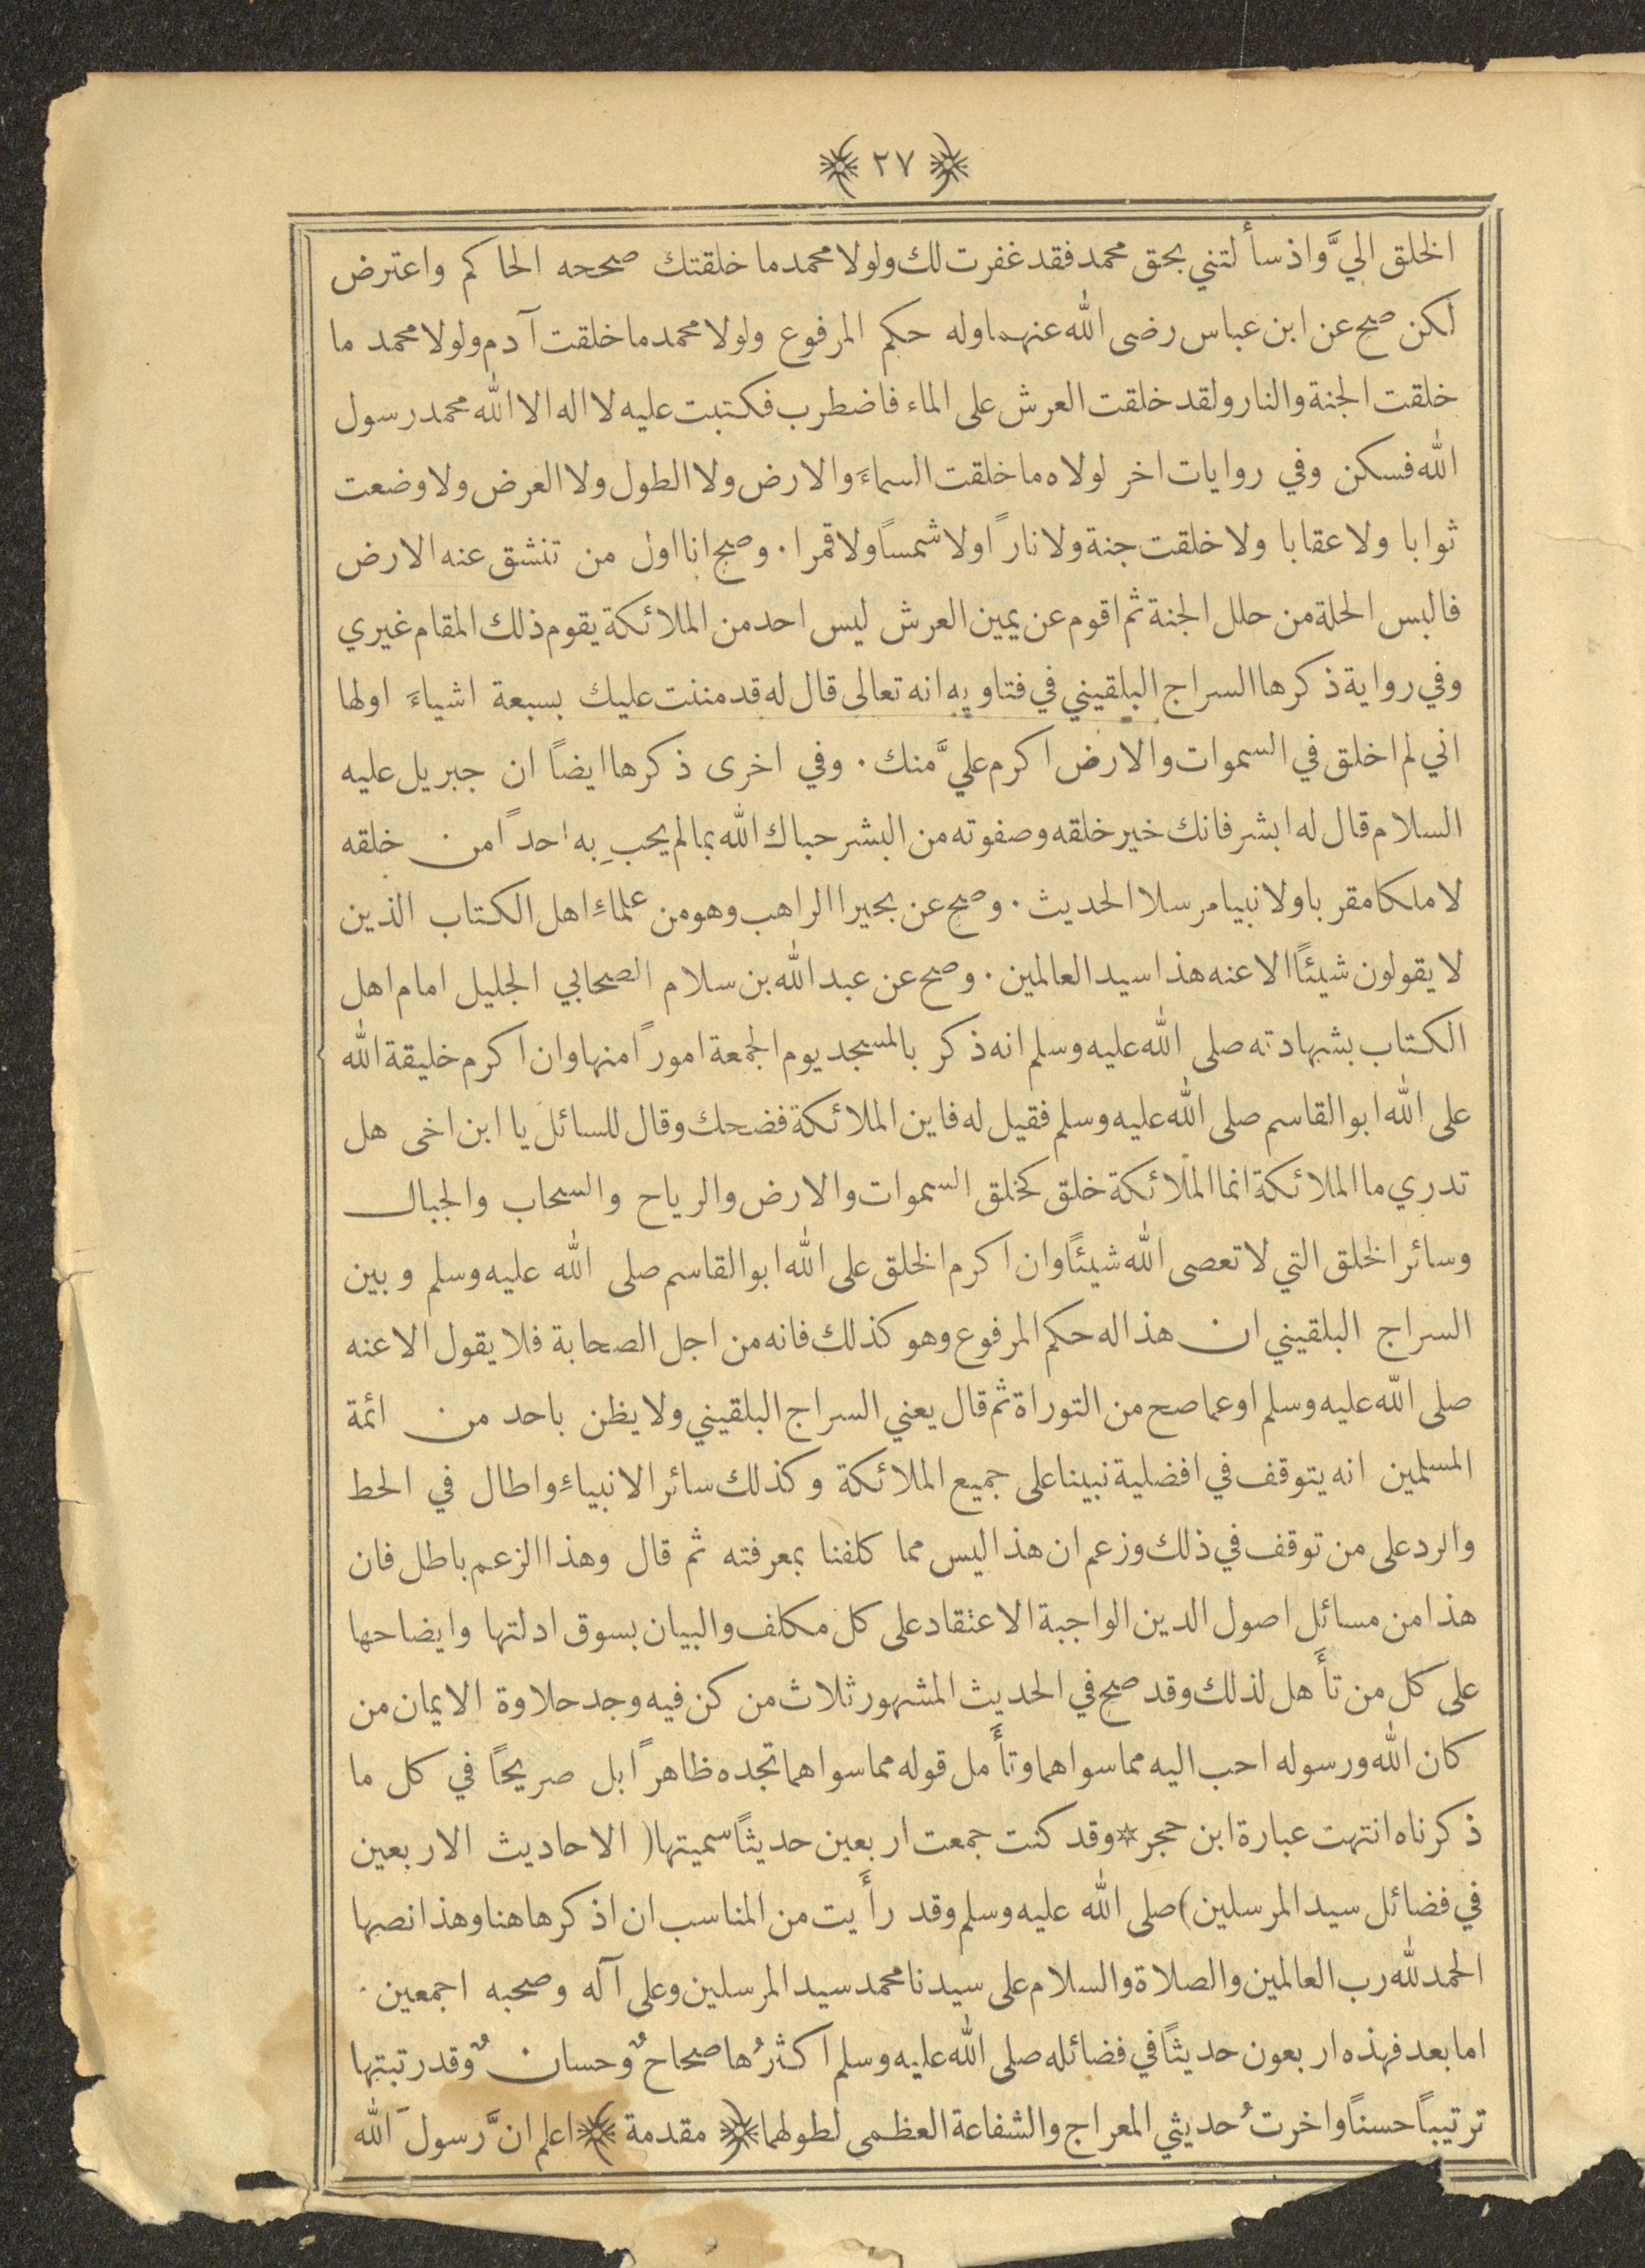 ﴿ ٢٧ ﴾
الخلق اليَّ واذ سأ لتني بحق محمد فقد غفرت لك ولولا محمد ما خلقتك صححه الحاكم واعترض
لكن صح عن ابن عباس رضى الله عنهما وله حكم المرفوع ولولا محمد ما خلقت آدم ولولا محمد ما
خلقت الجنة والنار ولقد خلقت العرش على الماء فاضطرب فكتبت عليه لا اله الا الله محمد رسول
الله فسكن وفي روايات اخر لولاه ما خلقت السماءَ والارض ولا الطول ولا العرض ولا وضعت
ثوابا ولا عقابا ولا خلقت جنة ولا نارًا ولا شمسًا ولا قمرا ٠ وصح انا اول من تنشق عنه الارض
فالبس الحلة من حلل الجنة ثم اقوم عن يمين العرش ليس احد من الملائكة يقوم ذلك المقام غيري
وفي رواية ذكرها السراج البلقيني في فتاويه انه تعالى قال له قد مننت عليك بسبعة اشياءَ اولها
اني لم اخلق في السموات والارض اكرم عليَّ منك ٠ وفي اخرى ذكرها ايضًا ان جبريل عليه
السلام قال له ابشر فانك خير خلقه وصفوته من البشر حباك الله بما لم يحبِ به احدًا من خلقه
لا ملكا مقربا ولا نبيا مرسلا الحديث ٠ وصح عن بحيرا الراهب وهو من علماءِ اهل الكتاب الذين
لا يقولون شيئًا الا عنه هذا سيد العالمين ٠ وصح عن عبد الله بن سلام الصحابي الجليل امام اهل
الكتاب بشهادته صلى الله عليه وسلم انه ذكر بالمسجد يوم الجمعة امورًا منها وان اكرم خليقة الله
على الله ابو القاسم صلى الله عليه وسلم فقيل له فاين الملائكة فضحك وقال للسائل يا ابن اخى هل
تدري ما الملائكة انما الملائكة خلق كخلق السموات والارض والرياح والسحاب والجبال
وسائر الخلق التي لا تعصى الله شيئًا وان اكرم الخلق على الله ابو القاسم صلى الله عليه وسلم وبين
السراج البلقيني ان هذا له حكم المرفوع وهو كذلك فانه من اجل الصحابة فلا يقول الا عنه
صلى الله عليه وسلم او عما صح من التوراة ثم قال يعني السراج البلقيني ولا يظن باحد من ائمة
المسلمين انه يتوقف في افضلية نبينا على جميع الملائكة وكذلك سائر الانبياءِ واطال في الحط
والرد على من توقف في ذلك وزعم ان هذا ليس مما كلفنا بمعرفته ثم قال وهذا الزعم باطل فان
هذا من مسائل اصول الدين الواجبة الاعتقاد على كل مكلف والبيان بسوق ادلتها وايضاحها
على كل من تأَهل لذلك وقد صح في الحديث المشهور ثلاث من كن فيه وجد حلاوة الايمان من
كان الله ورسوله احب اليه مما سواهما وتأَمل قوله مما سواهما تجده ظاهرًا بل صريحًا في كل ما
ذكرناه انتهت عبارة ابن حجر ☆ وقد كنت جمعت اربعين حديثًا سميتها ( الاحاديث الاربعين
في فضائل سيد المرسلين) صلى الله عليه وسلم وقد رأَيت من المناسب ان اذكرها هنا وهذا نصها
الحمد لله رب العالمين والصلاة والسلام على سيدنا محمد سيد المرسلين وعلى آله وصحبه اجمعين ٠
اما بعد فهذه اربعون حديثًا في فضائله صلى الله عليه وسلم اكثرُها صحاحٌ وحسانٌ وقد رتبتها
ترتيبًا حسنًا واخرتُ حديثي المعراج والشفاعة العظمى لطولهما ﴿ مقدمة ﴾ اعلم انَّ رسولَ الله